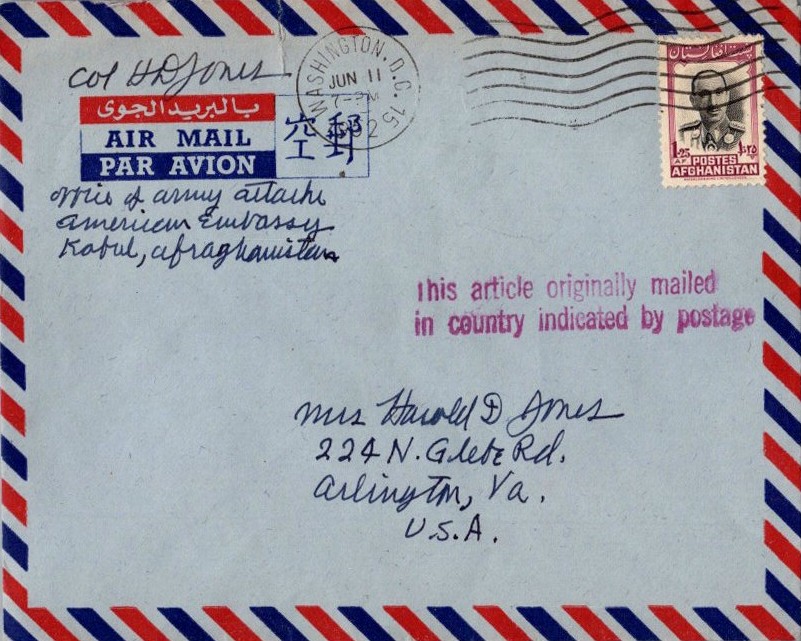 Col H D Jones
بالبريد الجوى
AIR MAIL
PAR AVION
空郵
office of army attache
American Embassy
Kabul, Afraghanistan
WASHINGTON, D.C. 15
JUN 11
7-PM
1.25
AF
POSTES
AFGHANISTAN
This article originally mailed
in country indicated by postage
Mrs Harold D Jones
224 N. Glebe Rd.
Arlington, Va.
U.S.A.